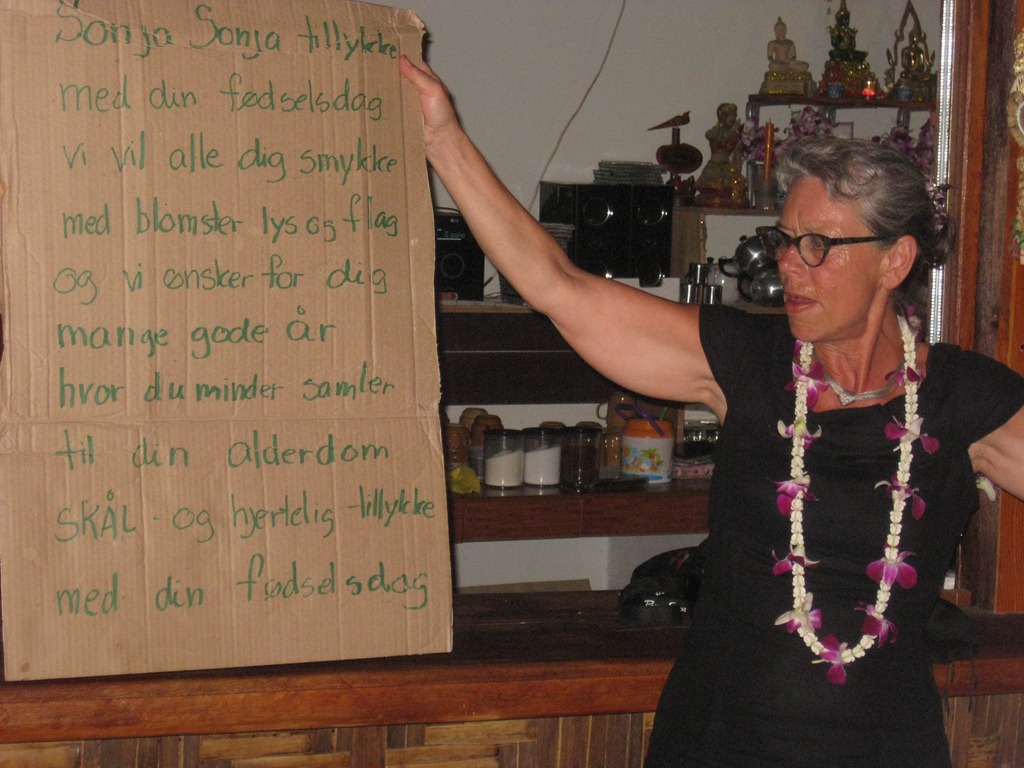 Sonja Sonja tillykke
med din fødselsdag
vi vil alle dig smykke
med blomster lys og flag
og vi ønsker for dig
mange gode år
hvor du minder samler
til din alderdom
SKÅL - og hjertelig tillykke
med din fødselsdag